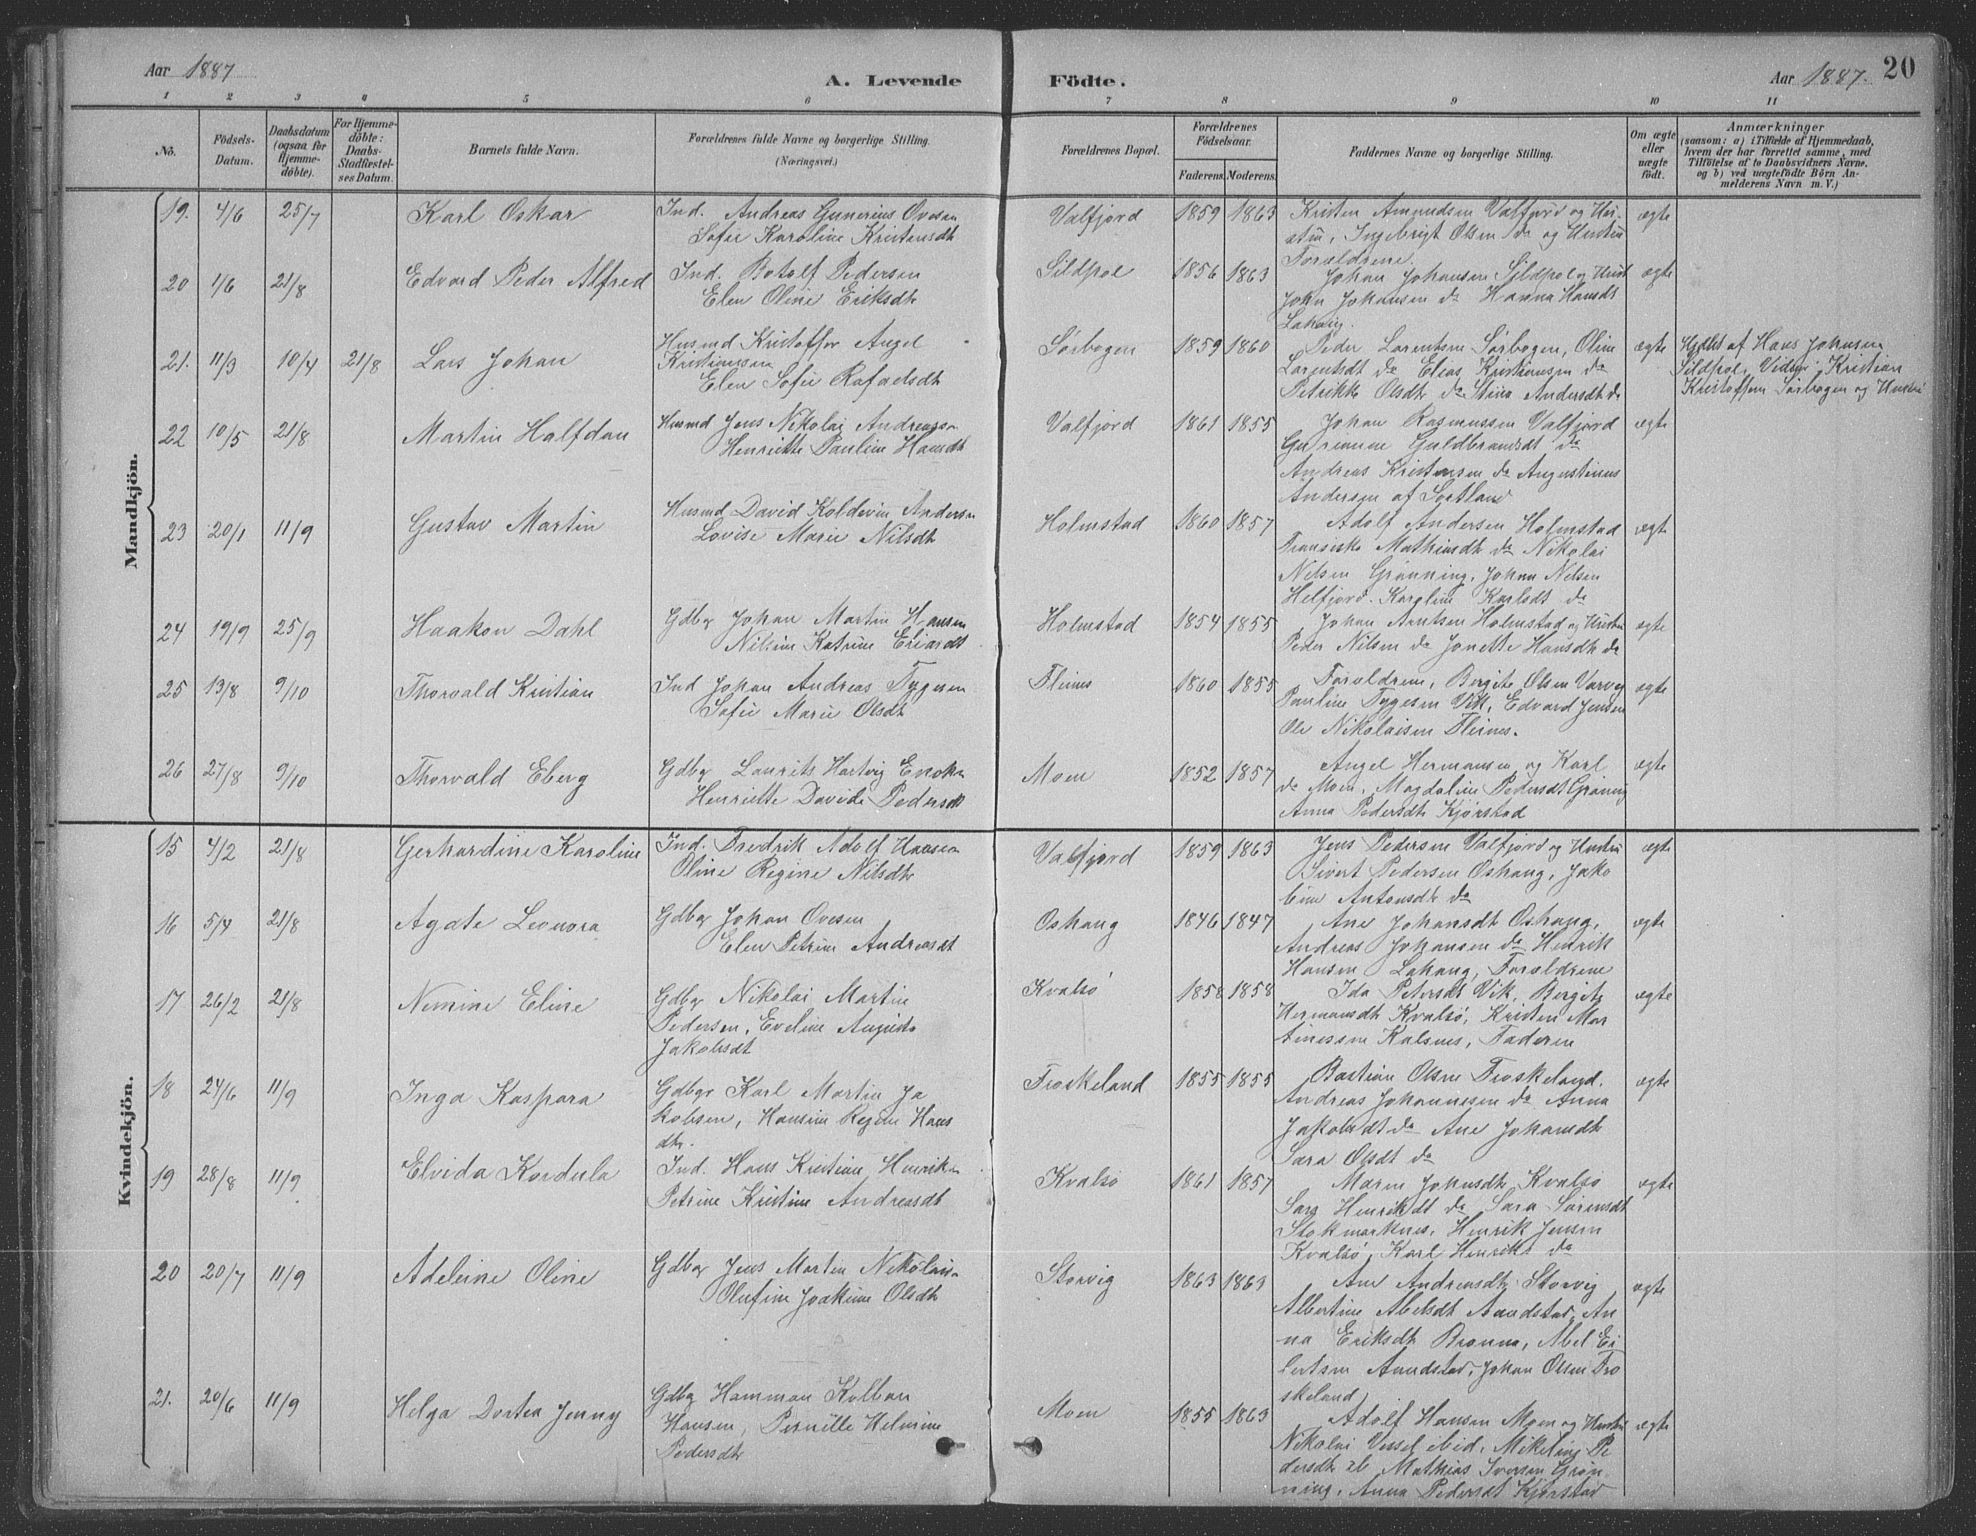 Aar 1887
A. Levende Födte.
Aar 1887. 20
1 2 3 4 5 6 7 8 9 10 11
No.
Födsels-Datum.
Daabsdatum (ogsaa for Hjemme-döbte).
For Hjemme-döbte: Daabs-Stadfæstel-ses Datum.
Barnets fulde Navn.
Forældrenes fulde Navne og borgerlige Stilling. (Næringsvei.)
Forældrenes Bopæl.
Forældrenes Födselsaar.
Faderens. Moderens.
Faddernes Navne og borgerlige Stilling.
Om ægte eller uægte födt.
Anmærkninger
(saasom: a) i Tilfælde af Hjemmedaab,
hvem der har forrettet samme, med
Tilföielse af to Daabsvidners Navne,
og b) ved uægtefödte Börn An-
melderens Navn m. V.)
Mandkjön.
19. 4/6 25/7 Karl Oskar Ind. Andreas Gunerius Ovesen Valfjord 1859 1863 Kristen Amundsen Valfjord og Hu- ægte
Sofie Karoline Kristensdt stru, Ingebrigt Olsen do og Hustru
Forældrene.
20 1/6 21/8 Edvard Peder Alfred Ind. Botolf Pedersen Sildpol 1856 1863 Johan Johansen Sildpol og Hust ægte
Elen Oline Eriksdt John Johansen do Hanna Hansdt
Lahaug.
21. 11/3 10/4 21/8 Lars Johan Husmd Kristoffer Angel Sørbogen 1859 1860 Peder Lorentsen Sørbogen, Oline ægte Hjdbt af Hans Johnsen
Kristiansen Lorentsdt do Elias Kristiansen do Sildpol. Vidner Kristian
Elen Sofie Rafaelsdt Petrikke Olsdt do Stina Andersdt do Kristoffersen Sørbogen og Hustru
22 10/5 21/8 Martin Halfdan Husmd Jens Nikolai Andreasen Valfjord 1861 1855 Johan Rasmussen Valfjord ægte
Henriette Pauline Hansdt Guldbrandsdt do
Andreas Kristensen do Augustinus
Andersen af Sortland
23 20/1 11/9 Gustav Martin Husmd David Koldevin Andersen Holmstad 1860 1857 Adolf Andersen Holmstad ægte
Lovise Marie Nilsdt Fransiska Mathiasdt do Nikolai
Nilsen Grønning, Johan Nelsen
Helfjord. Karoline Karlsdt do
24 19/9 25/9 Haakon Dahl Gdbgr Johan Martin Hansen Holmstad 1854 1855 Johan Arntsen Holmstad og Hustru ægte
Nilsine Katrine Eriardt Peder Nilsen do Jonette Hansdt do
25 13/8 9/10 Thorvald Kristian Ind Johan Andreas Tygesen Fleines 1860 1855 Forældrene, Bergite Olsen Varveg ægte
Sofie Marie Olsdt Pauline Tygesen Vik, Edvard Jensen
Ole Nikolaisen Fleines.
26 27/8 9/10 Thorvald Eberg Gdbgr Laurits Hartvig Enoks Moen 1852 1857 Angel Hermansen og Karl ægte
Henriette Davide Pedersdt do Moen, Magdaline Pedersdt Grøning
Anna Pedersdt Kjørstad
Kvindekjön.
15 4/2 21/8 Gerhardine Karoline Ind. Fredrik Adolf Hansen Valfjord 1859 1863 Jens Pedersen Valfjord og Hustru ægte
Oline Regine Nilsdt Sivert Pedersen Oshaug, Jako
bine Antonsdt do
16 5/4 21/8 Agate Leonora Gdbgr Johan Ovesen Oshaug 1846 1847 Ane Johansdt Oshaug, ægte
Elen Petrine Andreasdt Andreas Johansen do Henrik
Hansen Lahaug, Forældrene
17 26/2 21/8 Nemine Eline Gdbgr Nikolai Martin Kvalsø 1858 1858 Ida Petersdt Vik, Bergite ægte
Pedersen, Eveline Augusta Hermansdt Kvalsø, Kristen Mar
Jakobsdt tinussen Kalsnes, Faderen
18 24/6 11/9 Inga Kaspara Gdbgr Karl Martin Ja Froskeland 1855 1855 Bastian Olsen Froskeland, ægte
kobsen, Hansine Regine Hans Andreas Johannessen do Anna
dtr. Jakobsdt do Ane Johansdt
Sara Olsdt do
19 28/8 11/9 Elvida Kordula Ind. Hans Kristian Henriksen Kvalsø 1861 1857 Maren Johnsdt Kvalsø ægte
Petrine Kristine Andreasdt Sara Henriksdt do Sara Sørensdt
Stokmarknes, Henrik Jensen
Kvalsø, Karl Henriks do
20 20/7 11/9 Adeleine Oline Gdbgr Jens Martin Nikolais Storvig 1863 1863 Ane Andreasdt Storvig ægte
Olufine Joakime Olsdt Albertine Abelsdt Aandstad, An
na Eriksdt Brønna, Abel Ei
lertsen Aandstad, Johan Olsen Fro
skeland
21. 20/6 11/9 Helga Dortea Jenny Gdbgr Hamman Kolban Moen 1855 1863 Adolf Hansen Moen og Hustru ægte
Hansen, Pernille Helmine Nikolai Vessel ibid, Mikeline Pe
Pedersdt dersdtr ib Mathias Iversen Grøn
ning, Anna Pedersdt Kjørstad